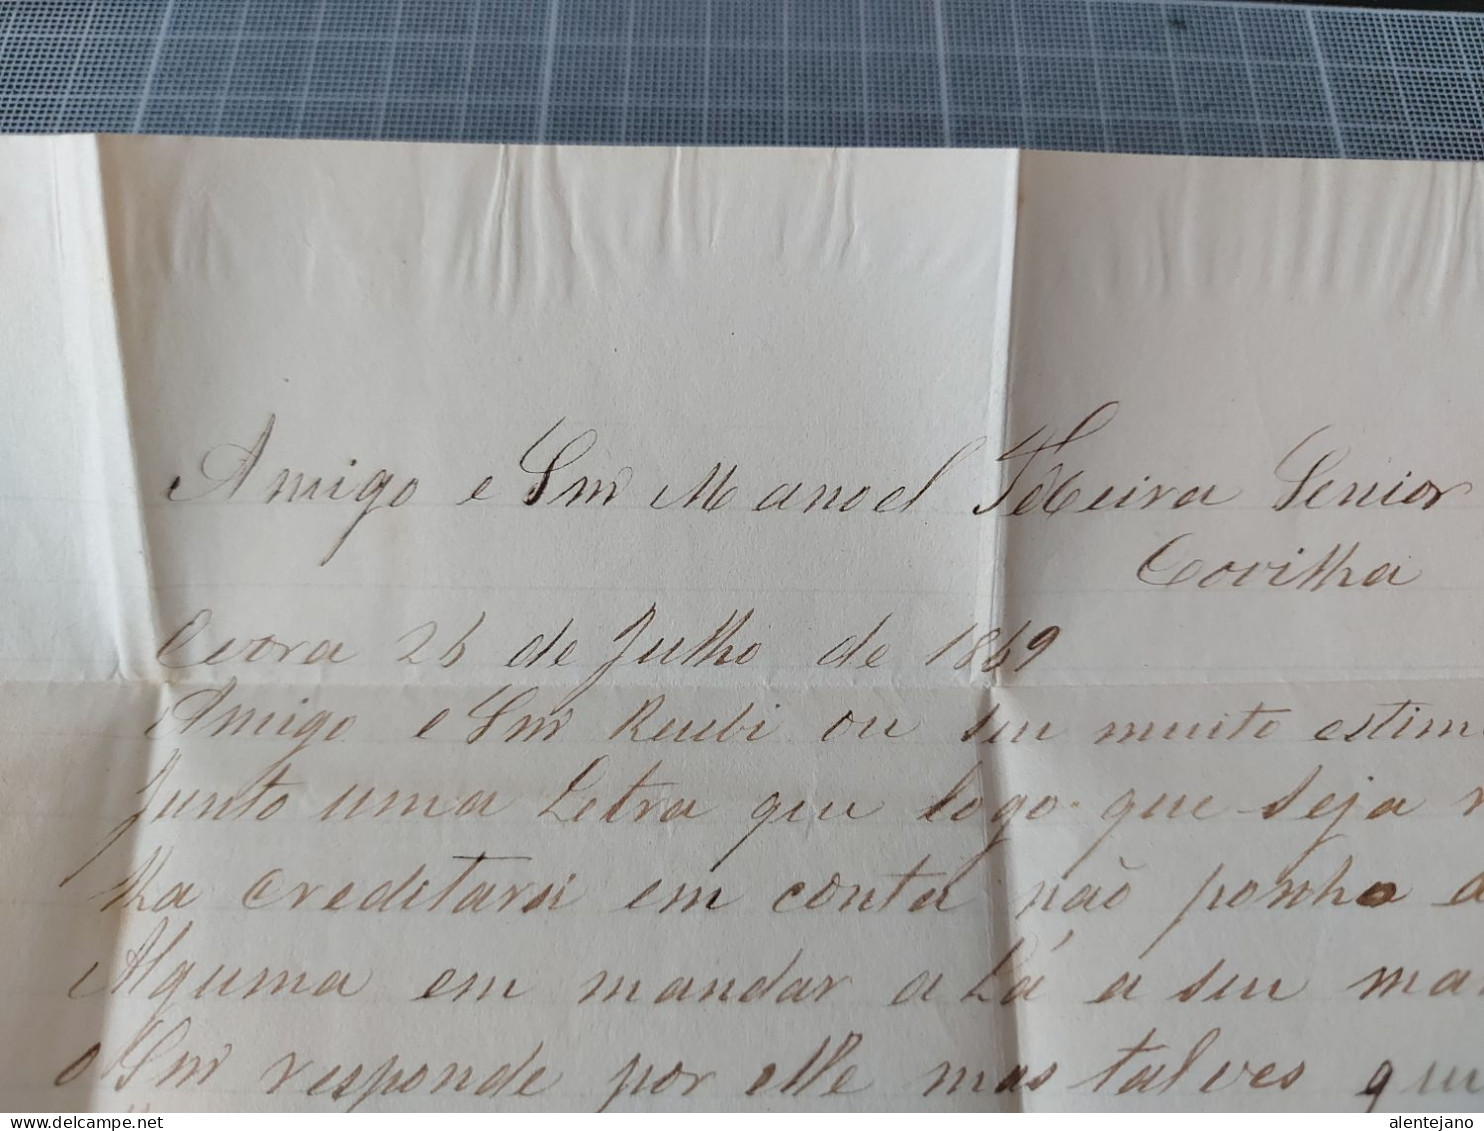 Amigo e Snr Manoel Teixeira Senior
Covilha
Evora 26 de Julho de 1869
Amigo e Snr Reubi ou seu muito estim
Junto uma Letra que logo que seja
lha creditará em conta não ponha
Alguma em mandar a Lá a seu
o Snr responde por elle mas talves qu
alentejano